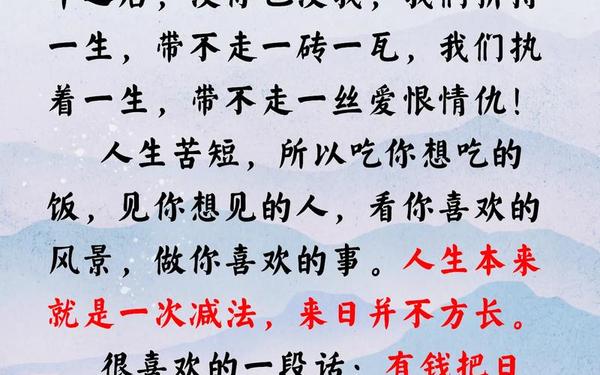 年之后，没你也没我，我们拼搏
一生，带不走一砖一瓦，我们执
着一生，带不走一丝爱恨情仇！
人生苦短，所以吃你想吃的
饭，见你想见的人，看你喜欢的
风景，做你喜欢的事。人生本来
就是一次减法，来日并不方长。
很喜欢的一段话：有钱把日